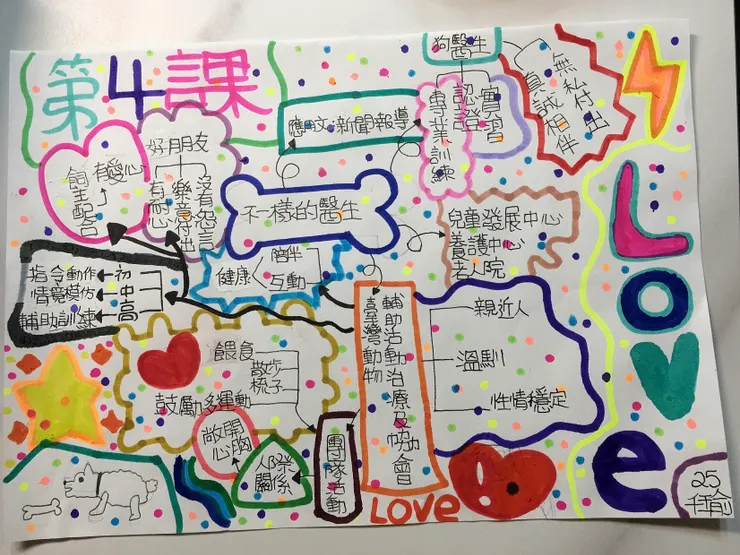 第4課
狗醫生
專業訓練
認證
實習
無私付出
真誠相伴
應用文:新聞報導
好用朋友
有耐心
樂意付出
沒有怨言
有愛心
飼主配合
不一樣的醫生
兒童發展中心
養護中心
老人院
陪伴
互動
健康
初
中
高
指令動作
情境模仿
輔助訓練
臺灣動物
輔助活動治療及協會
親近人
溫馴
性情穩定
餵食
散步
梳子
鼓勵多運動
敞開
心胸
人際
關係
團隊活動
LOVE
LOVe
25
任俞